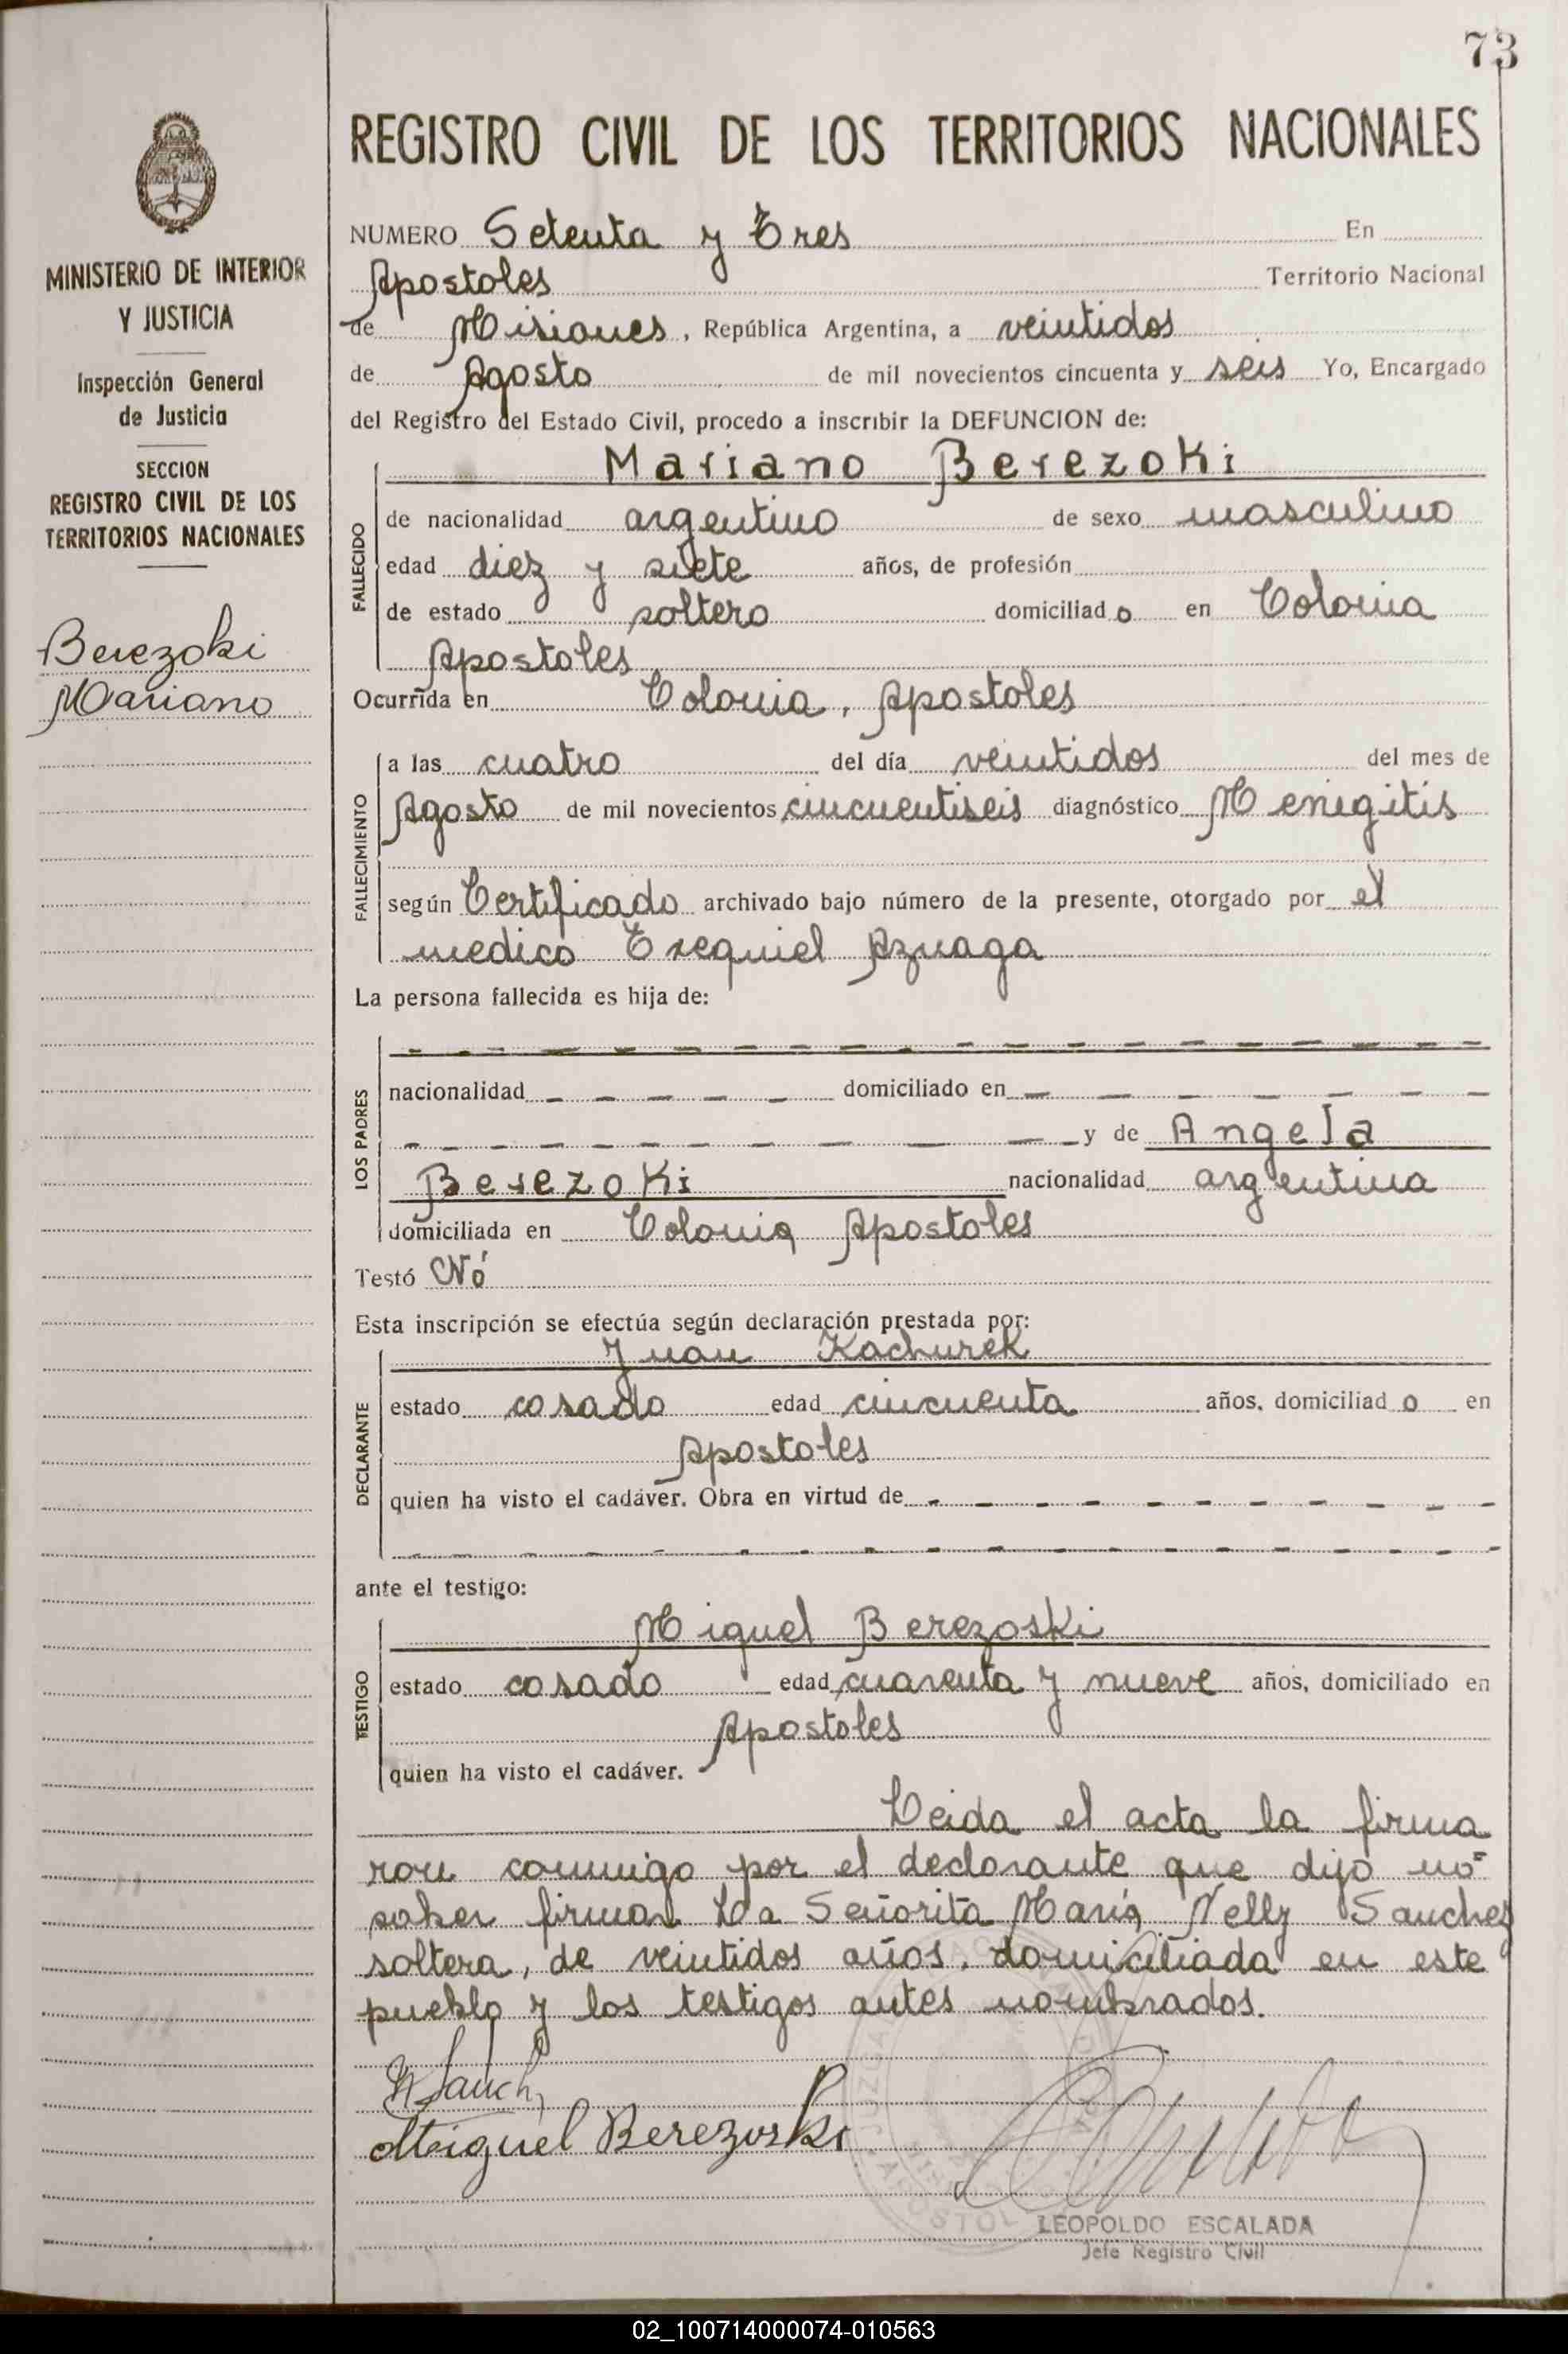 73
REGISTRO CIVIL DE LOS TERRITORIOS NACIONALES
MINISTERIO DE INTERIOR
Y JUSTICIA
Inspección General
de Justicia
SECCION
REGISTRO CIVIL DE LOS
TERRITORIOS NACIONALES
Berezoki
Mariano
NUMERO Setenta y Tres En
Apostoles Territorio Nacional
de Misiones, República Argentina, a veintidos
de Agosto de mil novecientos cincuenta y seis Yo, Encargado
del Registro del Estado Civil, procedo a inscribir la DEFUNCION de:
FALLECIDO
Mariano Berezoki
de nacionalidad argentino de sexo masculino
edad diez y siete años, de profesión
de estado soltero domiciliado en Colonia
Apostoles
Ocurrida en Colonia, Apostoles
FALLECIMIENTO
a las cuatro del día veintidos del mes de
Agosto de mil novecientos cincuentiseis diagnóstico Menigitis
según Certificado archivado bajo número de la presente, otorgado por el
medico Exequiel Azuaga
La persona fallecida es hija de:
LOS PADRES
nacionalidad domiciliado en
y de Angela
Berezoki nacionalidad argentina
domiciliada en Colonia Apostoles
Testó Nó
Esta inscripción se efectúa según declaración prestada por:
DECLARANTE
Juan Kachurek
estado casado edad cincuenta años, domiciliado en
Apostoles
quien ha visto el cadáver. Obra en virtud de
ante el testigo:
TESTIGO
Miguel Berezoski
estado casado edad cuarenta y nueve años, domiciliado en
Apostoles
quien ha visto el cadáver.
Leida el acta la firma
ron conmigo por el declarante que dijo no
saber firmar La Señorita María Nelly Sanchez
soltera, de veintidos años, domiciliada en este
pueblo y los testigos antes nombrados.
Miguel Berezoski
LEOPOLDO ESCALADA
Jefe Registro Civil
02_100714000074-010563